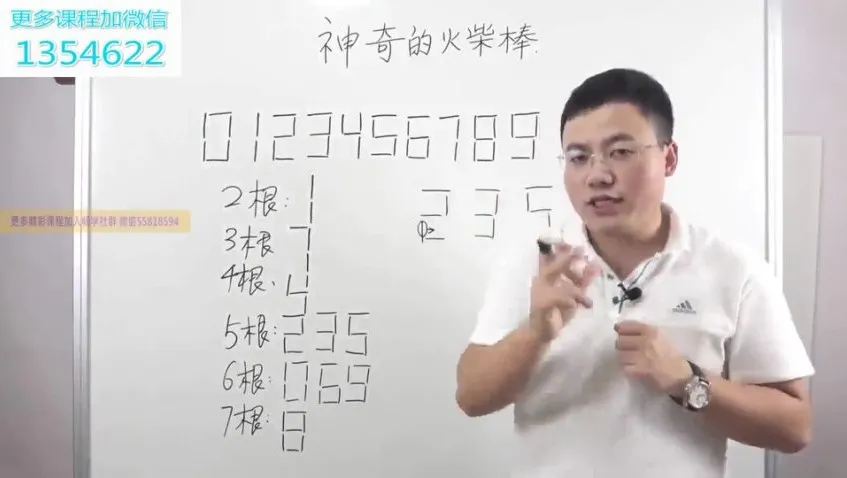 更多课程加微信
1354622
神奇的火柴棒
0123456789
2根: 1
更多精彩课程加入 学社群 微信55818594
3根 7
4根. 4
5根: 235
6根: 069
7根: 8
2 3 5
adidas